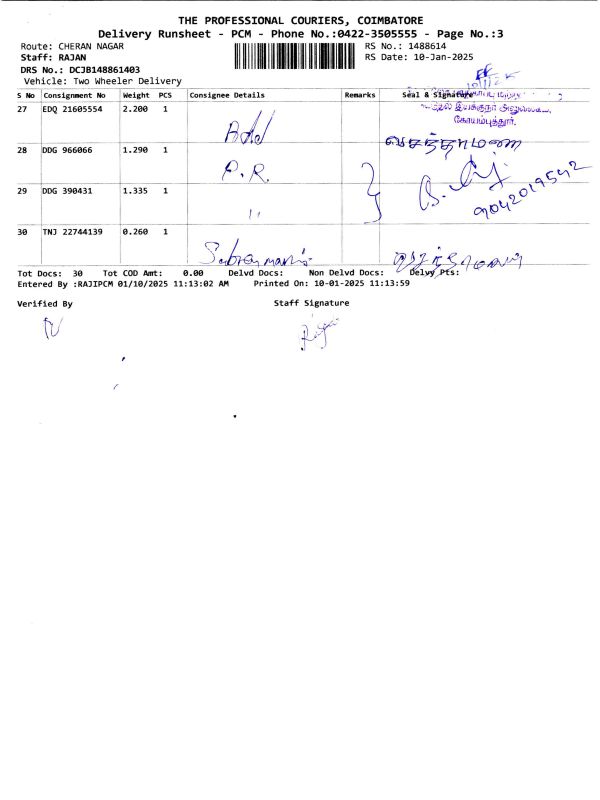 THE PROFESSIONAL COURIERS, COIMBATORE
Delivery Runsheet - PCM - Phone No.:0422-3505555 - Page No.:3
Route: CHERAN NAGAR RS No.: 1488614
Staff: RAJAN RS Date: 10-Jan-2025
DRS No.: DCJB148861403
Vehicle: Two Wheeler Delivery
S No Consignment No Weight PCS Consignee Details Remarks Seal & Signature
27 EDQ 21605554 2.200 1
கோயம்புத்தூர்.
28 DDG 966066 1.290 1 P.R.
29 DDG 390431 1.335 1 11 9042019542
30 TNJ 22744139 0.260 1
Tot Docs: 30 Tot COD Amt: 0.00 Delvd Docs: Non Delvd Docs: Delvy Pts:
Entered By :RAJIPCM 01/10/2025 11:13:02 AM Printed On: 10-01-2025 11:13:59
Verified By Staff Signature